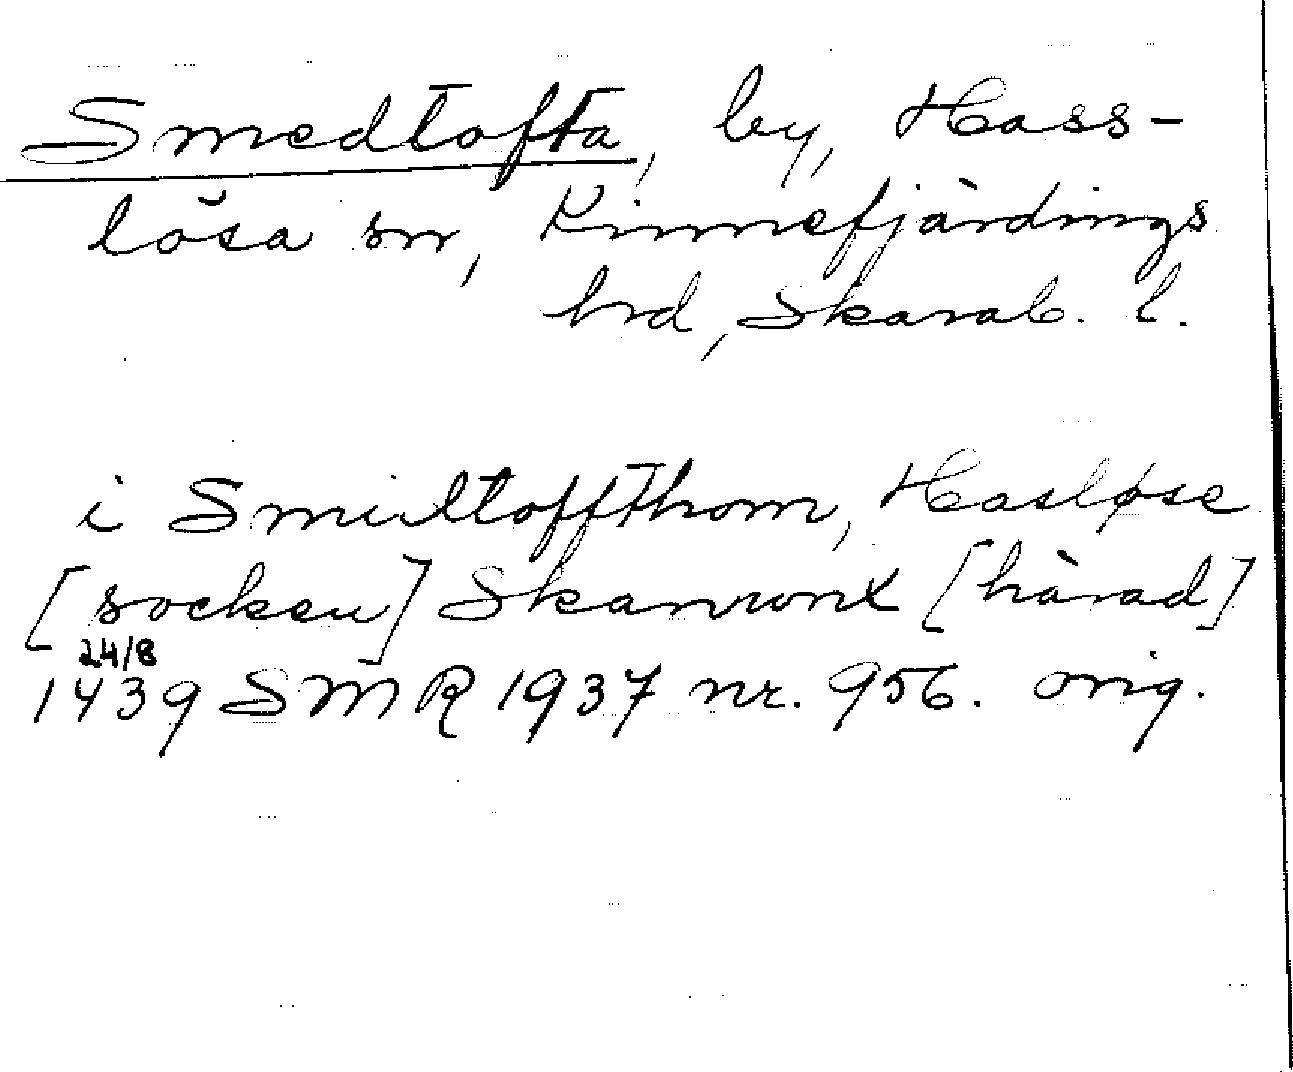 Smedtofta, by, Hass-
lösa sn, Kinnefjärdings
hrd, Skarab. l.
i Smidltoffthom, Hasløse
[socken] Skanungx [härad]
24/8
1439 SMR 1937 nr. 956. orig.